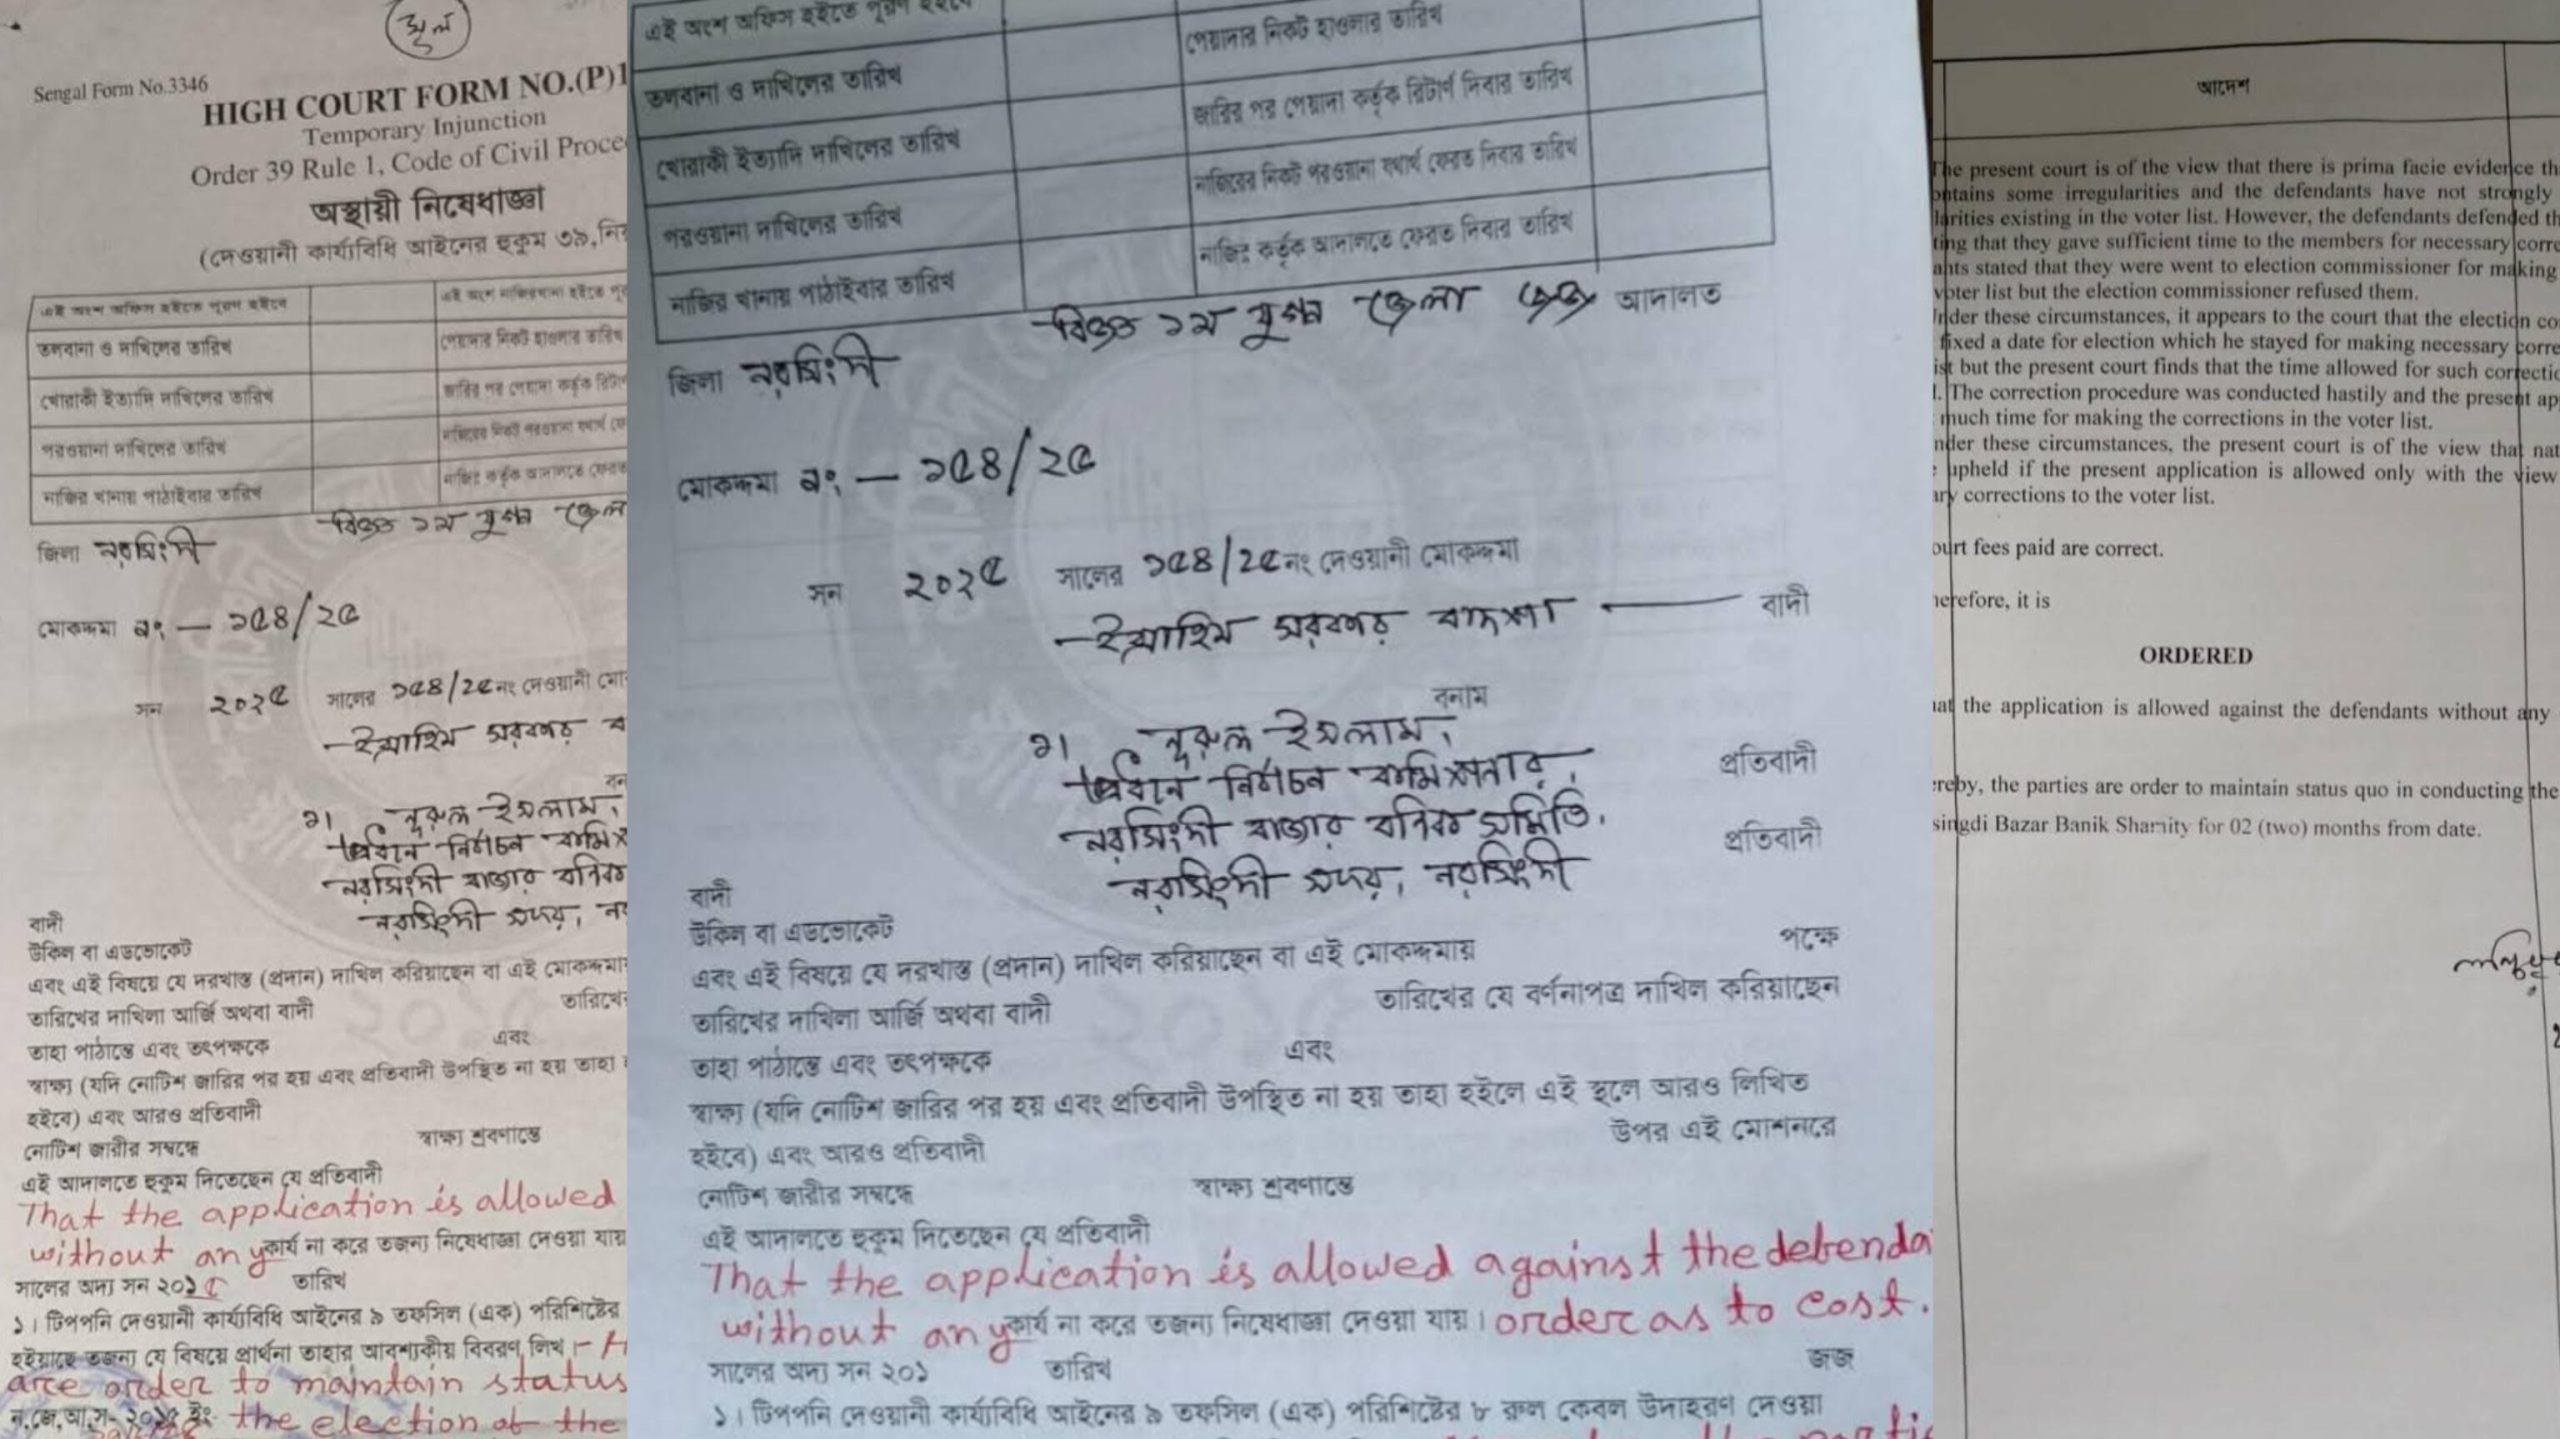 মূল
Sengal Form No.3346
HIGH COURT FORM NO.(P)1
Temporary Injunction
Order 39 Rule 1, Code of Civil Proce
অস্থায়ী নিষেধাজ্ঞা
(দেওয়ানী কার্য্যবিধি আইনের হুকুম ৩৯,নিয়
এই অংশ অফিস হইতে পূরণ হইবে
এই অংশ নাজিরখানা হইতে পূ
তলবানা ও দাখিলের তারিখ
পেয়াদার নিকট হাওলার তারিখ
খোরাকী ইত্যাদি দাখিলের তারিখ
জারির পর পেয়াদা কর্তৃক রিটার্ণ
পরওয়ানা দাখিলের তারিখ
নাজিরের নিকট পরওয়ানা যথার্থ ফে
নাজির খানায় পাঠাইবার তারিখ
নাজির কর্তৃক আদালতে ফেরত
বিজ্ঞ ১ম যুগ্ম জেলা
জিলা নরসিংদী
মোকদ্দমা নং — ১৫৪/২৫
সন ২০২৫ সালের ১৫৪/২৫ নং দেওয়ানী মো
ইব্রাহিম সরকার ব
বন
১। নুরুল ইসলাম,
প্রধান নির্বাচন কমিশ
নরসিংদী বাজার বনিক
নরসিংদী সদর, নর
বাদী
উকিল বা এডভোকেট
এবং এই বিষয়ে যে দরখাস্ত (প্রদান) দাখিল করিয়াছেন বা এই মোকদ্দমায়
তারিখের দাখিলা আর্জি অথবা বাদী তারিখের
তাহা পাঠান্তে এবং তৎপক্ষকে এবং
স্বাক্ষ্য (যদি নোটিশ জারির পর হয় এবং প্রতিবাদী উপস্থিত না হয় তাহা হ
হইবে) এবং আরও প্রতিবাদী
নোটিশ জারীর সম্বন্ধে স্বাক্ষ্য শ্রবণান্তে
এই আদালতে হুকুম দিতেছেন যে প্রতিবাদী
That the application is allowed
without any কার্য না করে তজন্য নিষেধাজ্ঞা দেওয়া যায়
সালের অদ্য সন ২০১৫ তারিখ
১। টিপপনি দেওয়ানী কার্য্যবিধি আইনের ৯ তফসিল (এক) পরিশিষ্টের
হইয়াছে তজন্য যে বিষয়ে প্রার্থনা তাহার আবশ্যকীয় বিবরণ লিখ।
are order to maintain status
the election of the
এই অংশ অফিস হইতে পূরণ হইবে
পেয়াদার নিকট হাওলার তারিখ
তলবানা ও দাখিলের তারিখ
জারির পর পেয়াদা কর্তৃক রিটার্ণ দিবার তারিখ
খোরাকী ইত্যাদি দাখিলের তারিখ
নাজিরের নিকট পরওয়ানা যথার্থ ফেরত দিবার তারিখ
পরওয়ানা দাখিলের তারিখ
নাজির কর্তৃক আদালতে ফেরত দিবার তারিখ
নাজির খানায় পাঠাইবার তারিখ
বিজ্ঞ ১ম যুগ্ম জেলা জজ আদালত
জিলা নরসিংদী
মোকদ্দমা নং — ১৫৪/২৫
সন ২০২৫ সালের ১৫৪/২৫ নং দেওয়ানী মোকদ্দমা
ইব্রাহিম সরকার বাদশা — বাদী
বনাম
১। নুরুল ইসলাম,
প্রধান নির্বাচন কমিশনার, প্রতিবাদী
নরসিংদী বাজার বনিক সমিতি, প্রতিবাদী
নরসিংদী সদর, নরসিংদী
বাদী
উকিল বা এডভোকেট পক্ষে
এবং এই বিষয়ে যে দরখাস্ত (প্রদান) দাখিল করিয়াছেন বা এই মোকদ্দমায়
তারিখের দাখিলা আর্জি অথবা বাদী তারিখের যে বর্ণনাপত্র দাখিল করিয়াছেন
তাহা পাঠান্তে এবং তৎপক্ষকে এবং
স্বাক্ষ্য (যদি নোটিশ জারির পর হয় এবং প্রতিবাদী উপস্থিত না হয় তাহা হইলে এই স্থলে আরও লিখিত
হইবে) এবং আরও প্রতিবাদী উপর এই মোশনরে
নোটিশ জারীর সম্বন্ধে স্বাক্ষ্য শ্রবণান্তে
এই আদালতে হুকুম দিতেছেন যে প্রতিবাদী
That the application is allowed against the defenda
without any কার্য না করে তজন্য নিষেধাজ্ঞা দেওয়া যায়। order as to cost.
সালের অদ্য সন ২০১ তারিখ জজ
১। টিপপনি দেওয়ানী কার্য্যবিধি আইনের ৯ তফসিল (এক) পরিশিষ্টের ৮ রুল কেবল উদাহরণ দেওয়া
আদেশ
The present court is of the view that there is prima facie evidence th
ontains some irregularities and the defendants have not strongly
larities existing in the voter list. However, the defendants defended th
ting that they gave sufficient time to the members for necessary corre
ants stated that they were went to election commissioner for making
voter list but the election commissioner refused them.
Inder these circumstances, it appears to the court that the election co
fixed a date for election which he stayed for making necessary corre
ist but the present court finds that the time allowed for such correctio
l. The correction procedure was conducted hastily and the present ap
much time for making the corrections in the voter list.
nder these circumstances, the present court is of the view that nat
upheld if the present application is allowed only with the view
ary corrections to the voter list.
ourt fees paid are correct.
herefore, it is
ORDERED
hat the application is allowed against the defendants without any
ereby, the parties are order to maintain status quo in conducting the
singdi Bazar Banik Shamity for 02 (two) months from date.